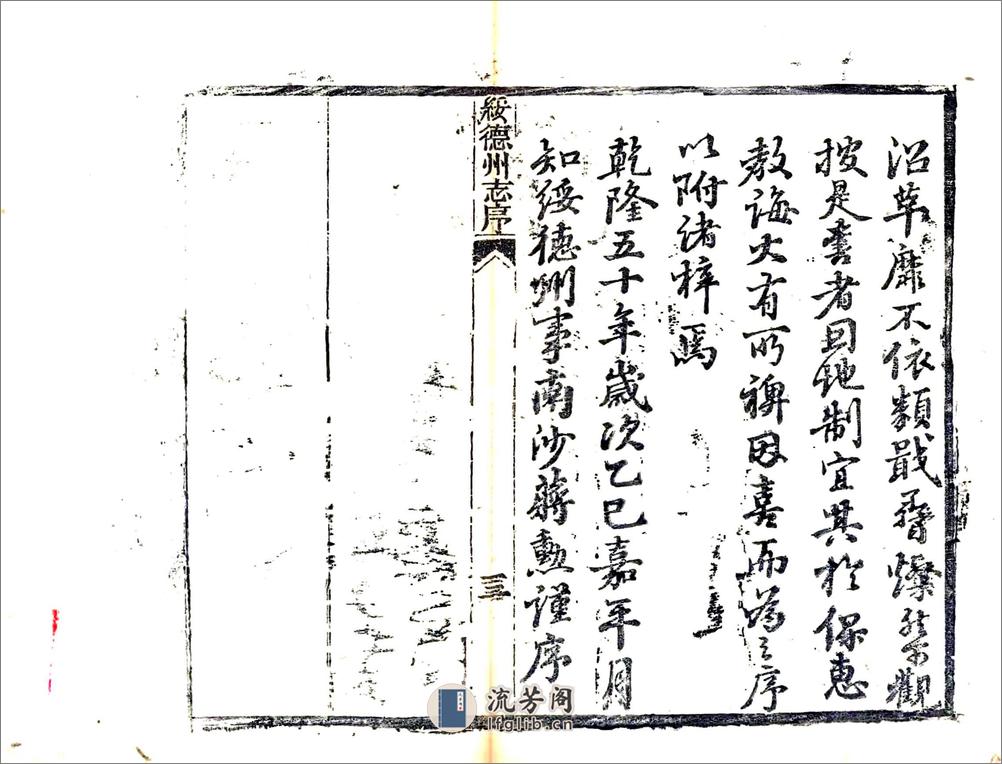 沿革靡不依類戢孴燦然可觀
按是書者因地制宜其於保惠
教誨大有所裨因喜而爲之序
以附諸梓焉
乾隆五十年歲次乙巳嘉年月
知綏德州事南沙蔣勲謹序
綏德州志序
三
流芳阁
lfglib.cn